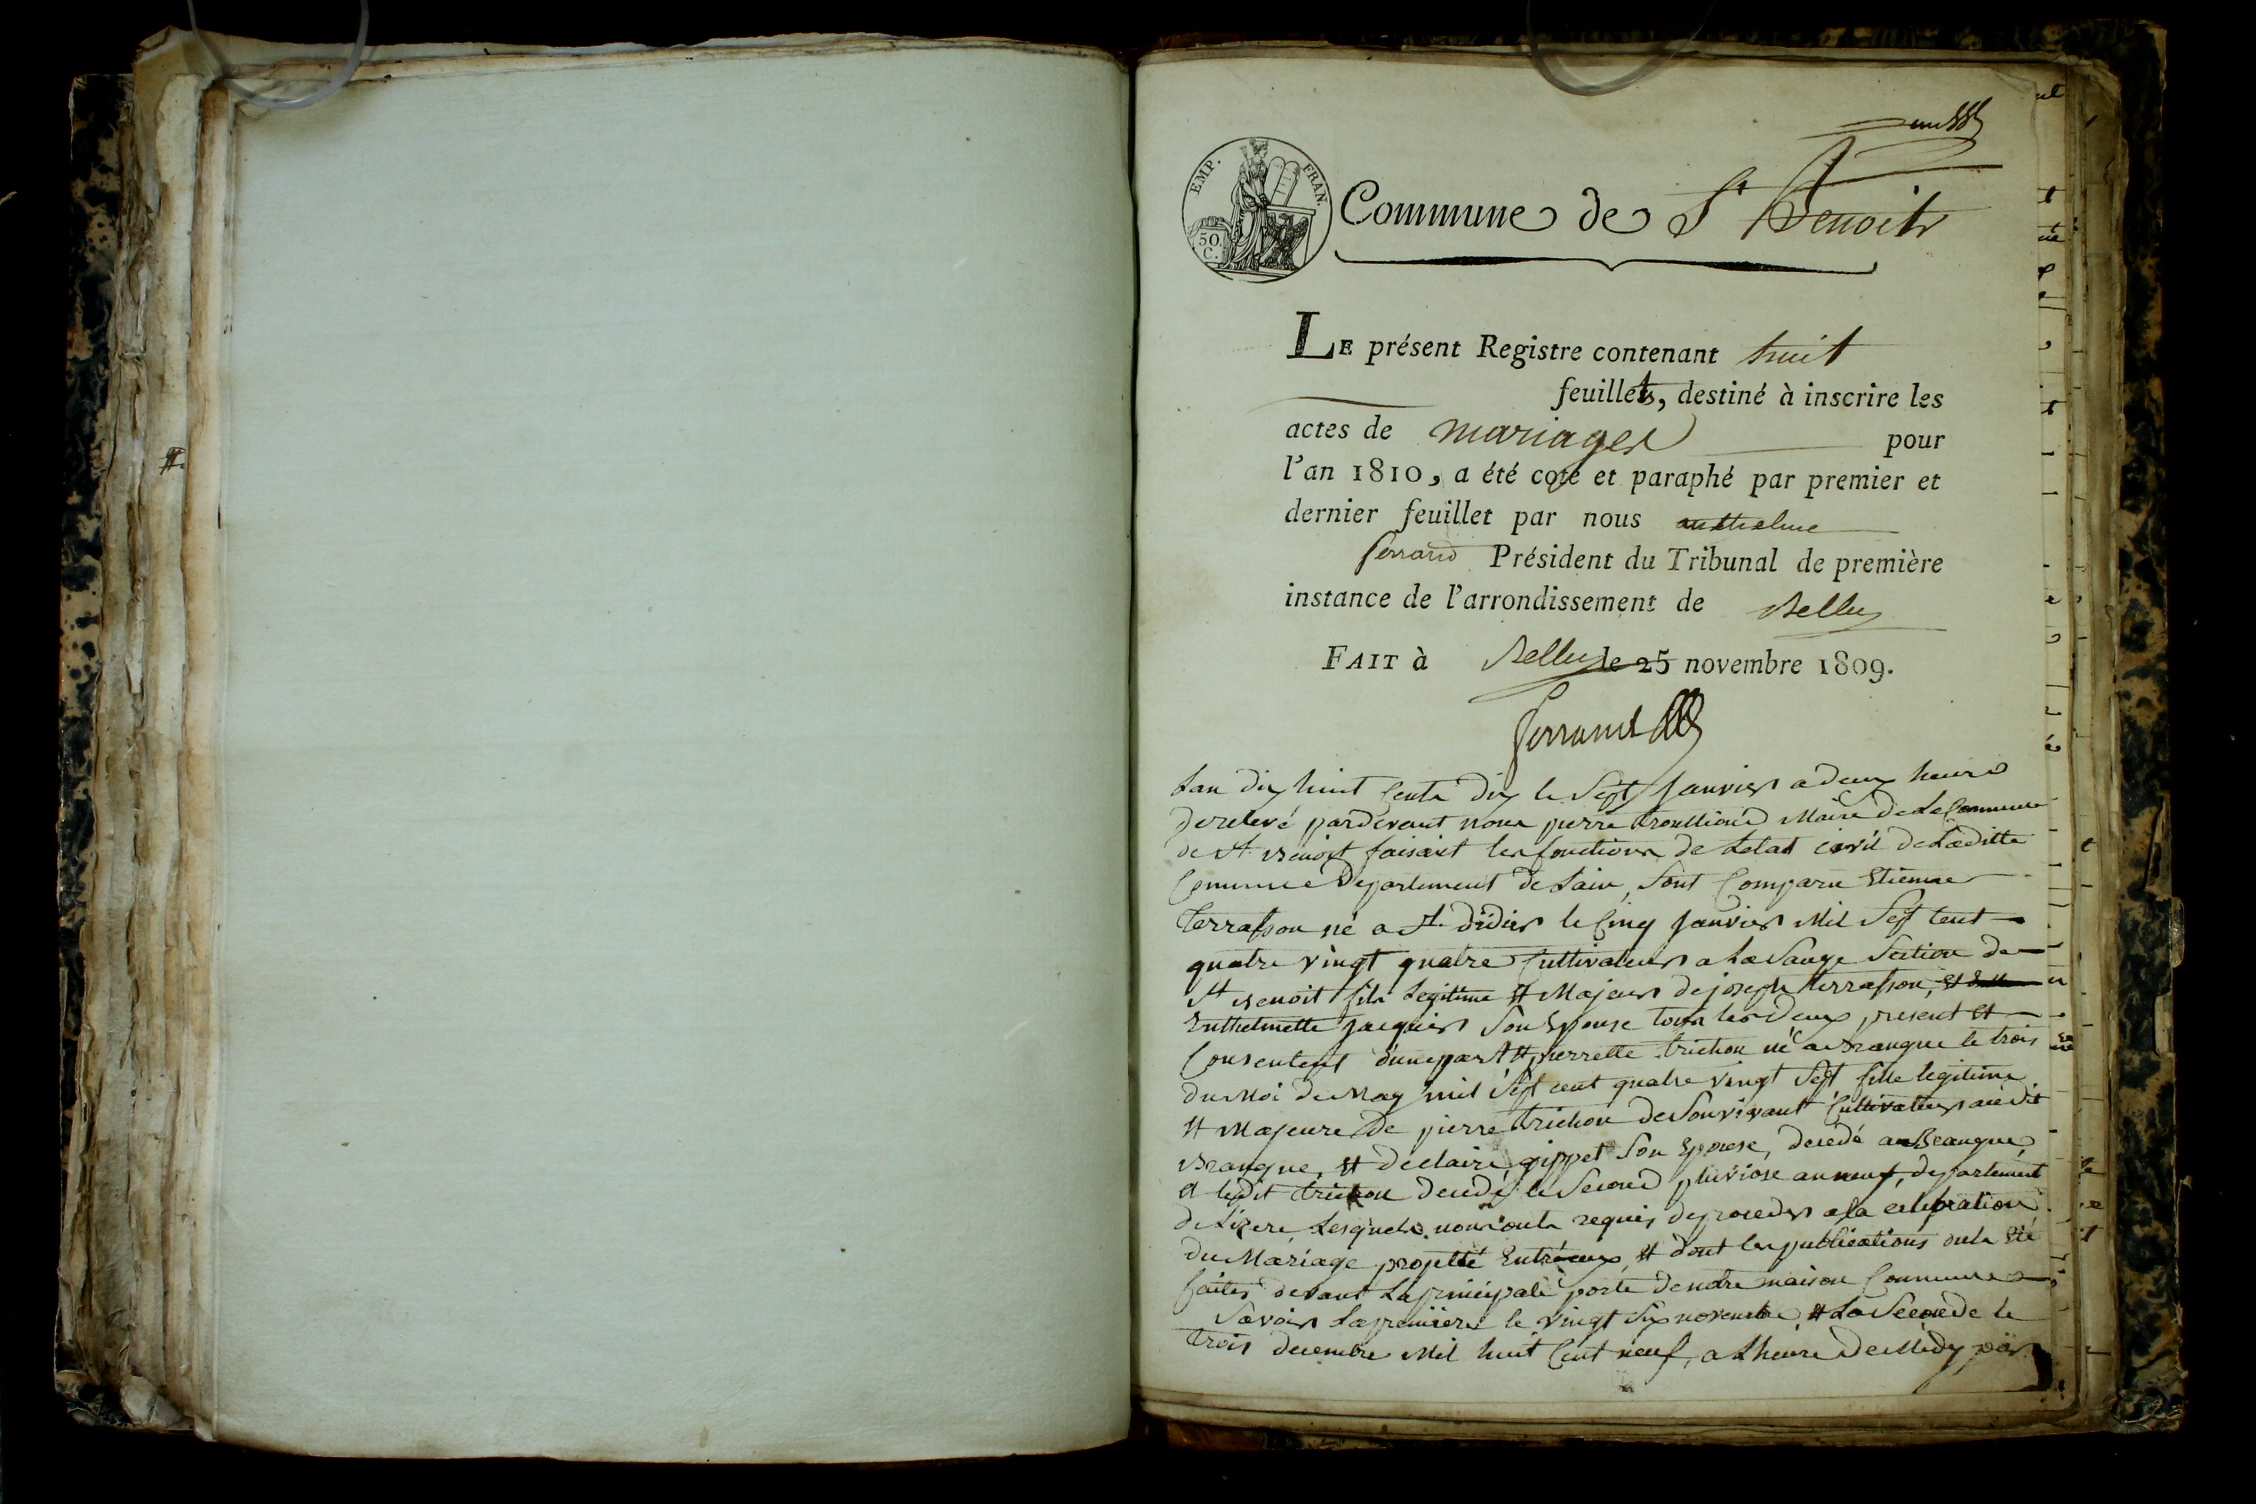 un
EMP. FRAN.
50. C.
Commune de St Benoit
LE présent Registre contenant huit
feuillets, destiné à inscrire les
actes de mariages pour
l'an 1810, a été coté et paraphé par premier et
dernier feuillet par nous anthelme
ferrand Président du Tribunal de première
instance de l'arrondissement de Belley
FAIT à Belley le 25 novembre 1809.
ferrand
Lan dix huit Cents dix le Sept Janvier a deux heures
de relevé pardevant nous pierre Maire de La Commune
de St Benoit faisant les fonctions de Letat civil de Laditte
Commune Departement de Lain, Sont Comparu Etienne
terrasson né a St didier le Cinq Janvier Mil Sept Cent
quatre vingt quatre Cultivateur a La Sauge Section de
St Benoit fils Legitime et Majeur de joseph terrasson,
Enthelmette jacquier Son Epouse tous les deux present et
Consentent dunepart et pierrette trichon né a Brangue le trois
du Moi de May mil Sept cent quatre vingt Sept fille legitime
et Majeure de pierre trichon de Sonvivant Cultivateur audit
Brangue, et de claire gippet Son Epouse, decedé a Brangue,
et ledit trichon decedé le Second pluviose an neuf, departement
de Lizere, Lesquels nous onts requis de proceder a la celebration
du Mariage projetté Entréeux, et dont les publications onts Eté
faites devant La principale porte de notre maison Commune
Savoir La premiere le vingt Six novembre et La Seconde le
trois decembre Mil huit Cent neuf, a Lheure de Midy, par